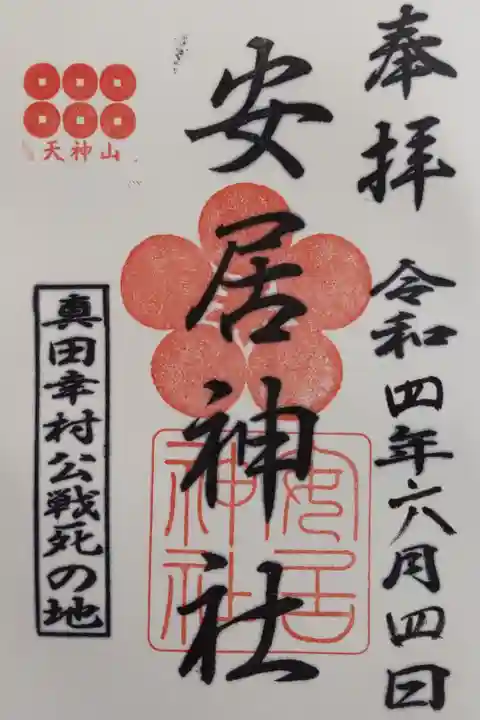 奉拝 令和四年六月四日
安居神社
安居
神社
天神山
真田幸村公戦死の地